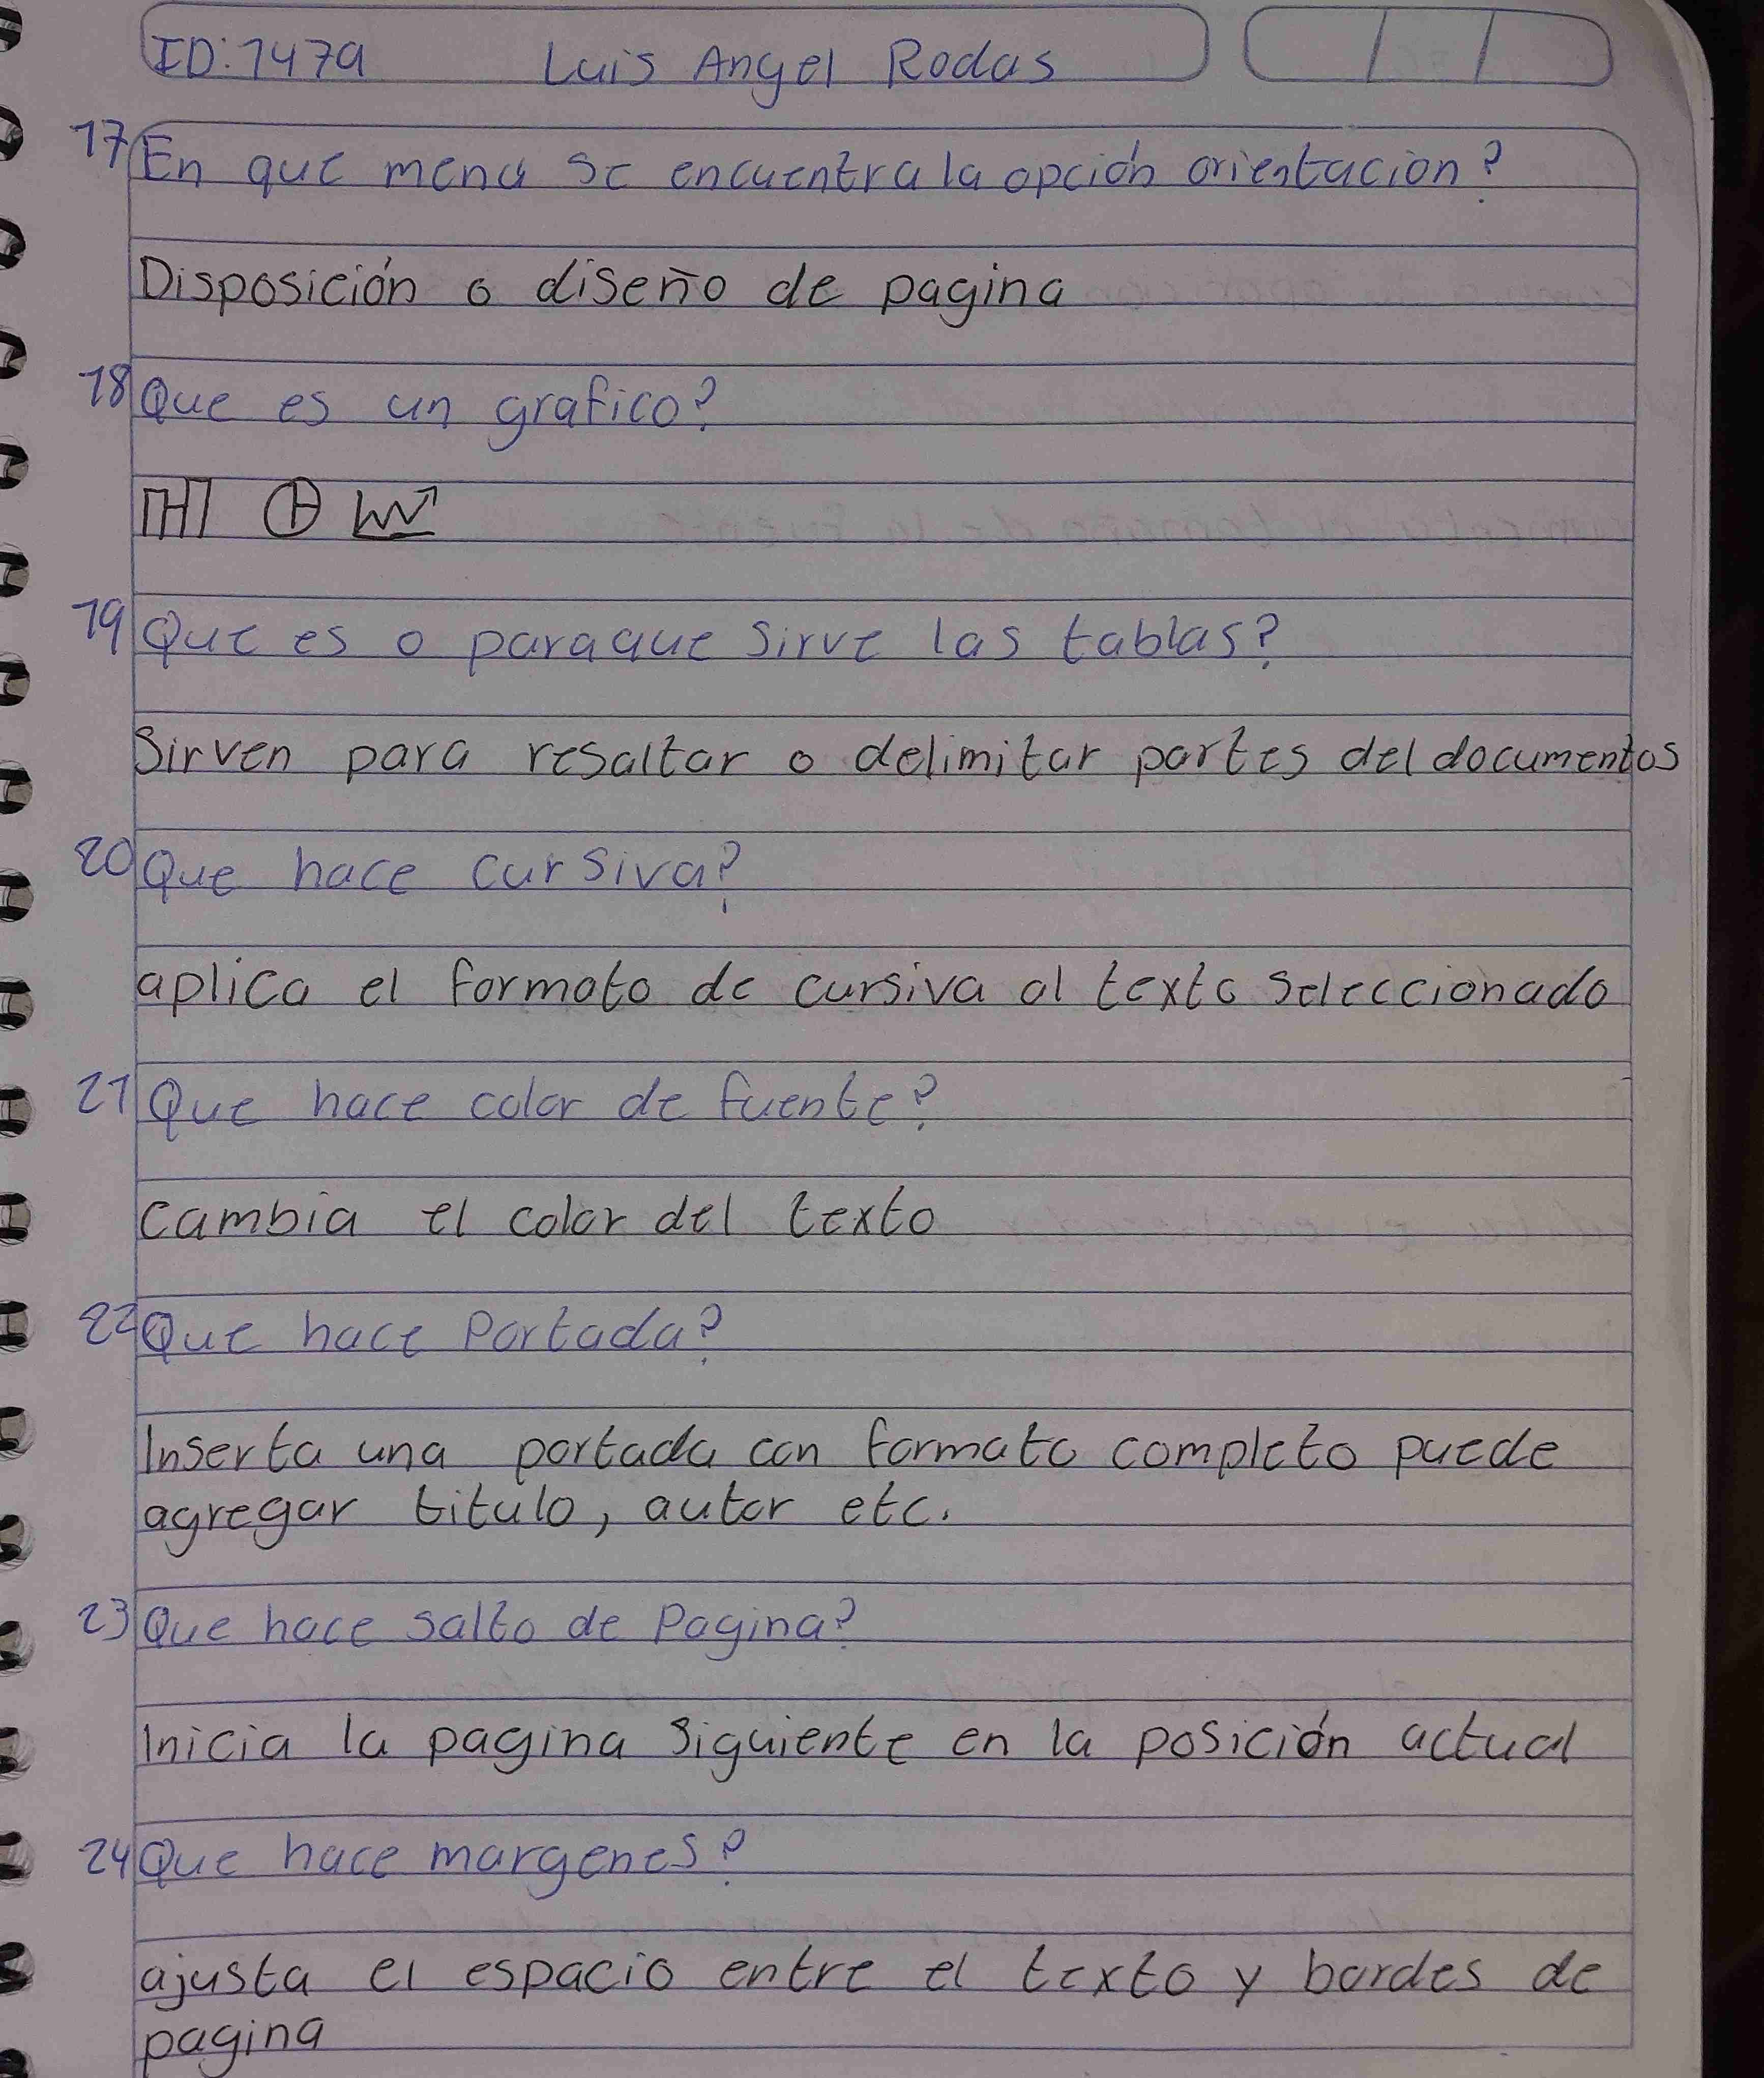 ID: 1479 Luis Angel Rodas
17 En que menu se encuentra la opción orientacion?
Disposición o diseño de pagina
18 Que es un grafico?
19 Que es o paraque sirve las tablas?
Sirven para resaltar o delimitar partes del documentos
20 Que hace cursiva?
aplica el formato de cursiva al texto seleccionado
21 Que hace color de fuente?
cambia el color del texto
22 Que hace Portada?
Inserta una portada con formato completo puede
agregar titulo, autor etc.
23 Que hace salto de Pagina?
Inicia la pagina siguiente en la posición actual
24 Que hace margenes?
ajusta el espacio entre el texto y bordes de
pagina